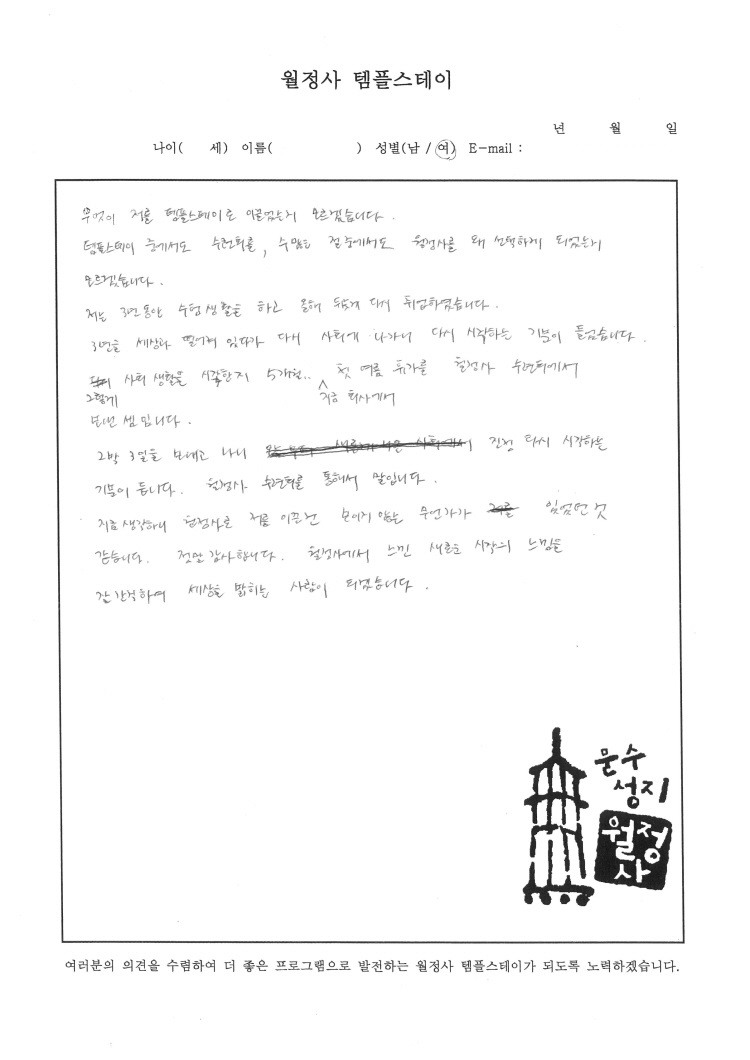 월정사 템플스테이
년 월 일
나이( 세) 이름( ) 성별(남 / 여) E-mail :
무엇이 저를 템플스테이로 이끌었는지 모르겠습니다.
템플스테이 중에서도 수련회를, 수많은 절 중에서도 월정사를 왜 선택하게 되었는지
모르겠습니다.
저는 3년동안 수험생활을 하고 올해 늦게 다시 취업하였습니다.
3년을 세상과 떨어져 있다가 다시 사회에 나가니 다시 시작하는 기분이 들었습니다.
그렇게 사회 생활을 시작한지 5개월.. 지금 회사에서 첫 여름 휴가를 월정사 수련회에서
보낸 셈 입니다.
2박 3일을 보내고 나니 진정 다시 시작하는
기분이 듭니다. 월정사 수련회를 통해서 말입니다.
지금 생각하니 월정사로 저를 이끈건 보이지 않는 무언가가 있었던 것
같습니다. 정말 감사합니다. 월정사에서 느낀 새로운 시작의 느낌을
잘 간직하여 세상을 밝히는 사람이 되겠습니다.
문수
성지
월정
사
여러분의 의견을 수렴하여 더 좋은 프로그램으로 발전하는 월정사 템플스테이가 되도록 노력하겠습니다.